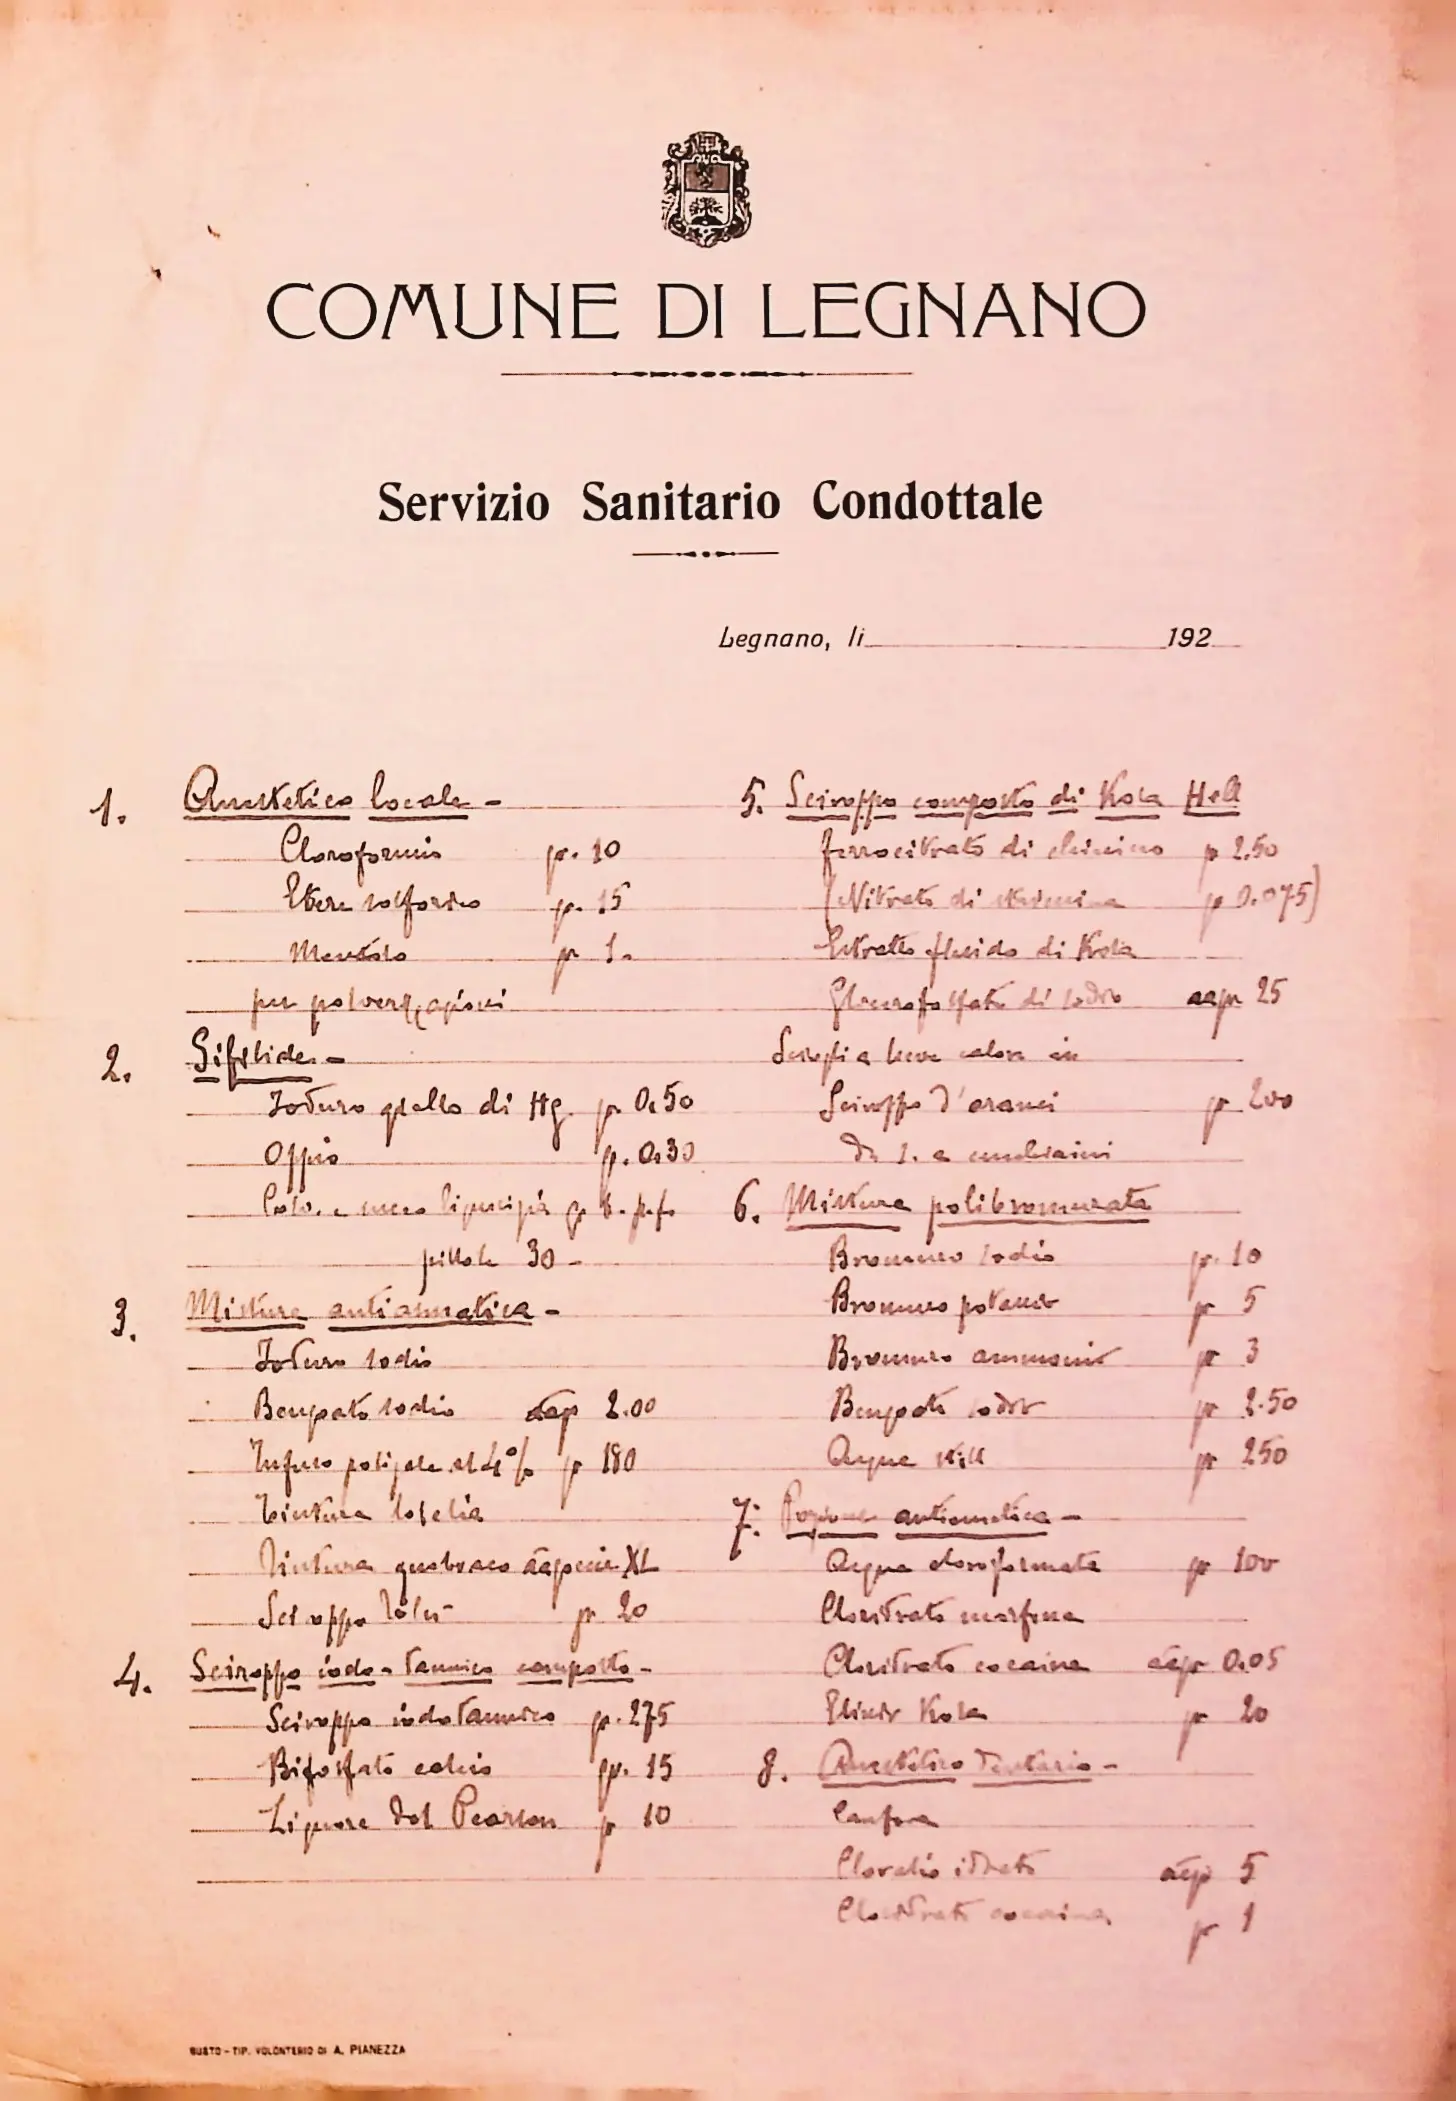 COMUNE DI LEGNANO
Servizio Sanitario Condottale
Legnano, li 192
1. Anestetico locale -
Cloroformio gr. 10
Etere solforico gr. 15
Mentolo gr 1.
per polverizzazioni
2. Sifilide -
Ioduro giallo di Hg. gr. 0,50
Oppio g. 0,30
Polv. e succo liquirizia q. b. p. f.
pillole 30 -
3. Mistura antiasmatica -
Ioduro sodio
Benzoato sodio aa gr 2.00
Infuso poligala al 4% gr 180
Tintura lobelia
Tintura quebraco aa gocce XL
Sciroppo Tolù - gr 20
4. Sciroppo iodo-tannico composto -
Sciroppo iodotannico gr. 275
Bifosfato calcio gr. 15
Liquore del Pearson gr 10
5. Sciroppo composto di Kola Hell
Ferrocitrato di chinino gr 2.50
(Nitrato di stricnina gr 0.075)
Estratto fluido di Kola
Glicerofosfato di sodio aa gr 25
Sciogli a lieve calore in
Sciroppo d'aranci gr 200
Da 1. a cucchiaini
6. Mistura polibromurata
Bromuro sodio gr. 10
Bromuro potassio gr 5
Bromuro ammonio gr 3
Benzoato sodio gr 2.50
Acqua still gr 250
7. Pozione antiemetica -
Acqua cloroformata gr 100
Cloridrato morfina
Cloridrato cocaina aa gr 0.05
Elixir Kola gr 20
8. Anestetico Dentario -
Canfora
Cloralio idrato aa gr 5
Cloridrato cocaina gr 1
BUSTO - TIP. VOLONTERIO DI A. PIANEZZA